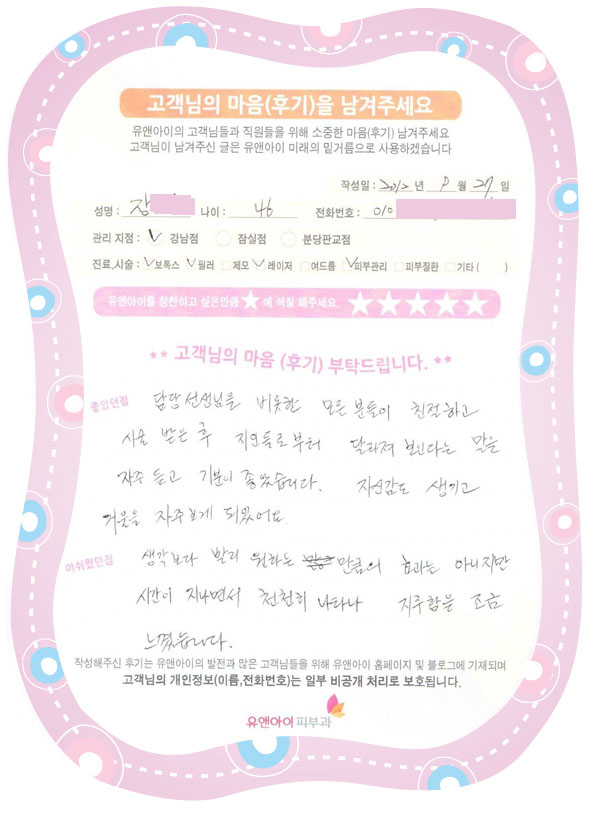 고객님의 마음(후기)을 남겨주세요
유앤아이의 고객님들과 직원들을 위해 소중한 마음(후기) 남겨주세요
고객님이 남겨주신 글은 유앤아이 미래의 밑거름으로 사용하겠습니다
작성일 : 2012 년 9 월 27 일
성명 : 장 나이 : 46 전화번호 : 010
관리 지점 : 강남점 잠실점 분당판교점
진료,시술 : 보톡스 필러 제모 레이저 여드름 피부관리 피부질환 기타 ( )
유앤아이를 칭찬하고 싶은만큼 ★ 에 색칠 해주세요. ★★★★★
** 고객님의 마음 (후기) 부탁드립니다. **
좋았던점 담당선생님을 비롯한 모든 분들이 친절하고
시술 받은 후 지인들로부터 달라져 보인다는 말을
자주 듣고 기분이 좋았습니다. 자신감도 생기고
거울을 자주보게 되었어요
아쉬웠던점 생각보다 빨리 원하는 만큼의 효과는 아니지만
시간이 지나면서 천천히 나타나 지루함을 조금
느꼈습니다.
작성해주신 후기는 유앤아이의 발전과 많은 고객님들을 위해 유앤아이 홈페이지 및 블로그에 기재되며
고객님의 개인정보(이름,전화번호)는 일부 비공개 처리로 보호됩니다.
유앤아이피부과